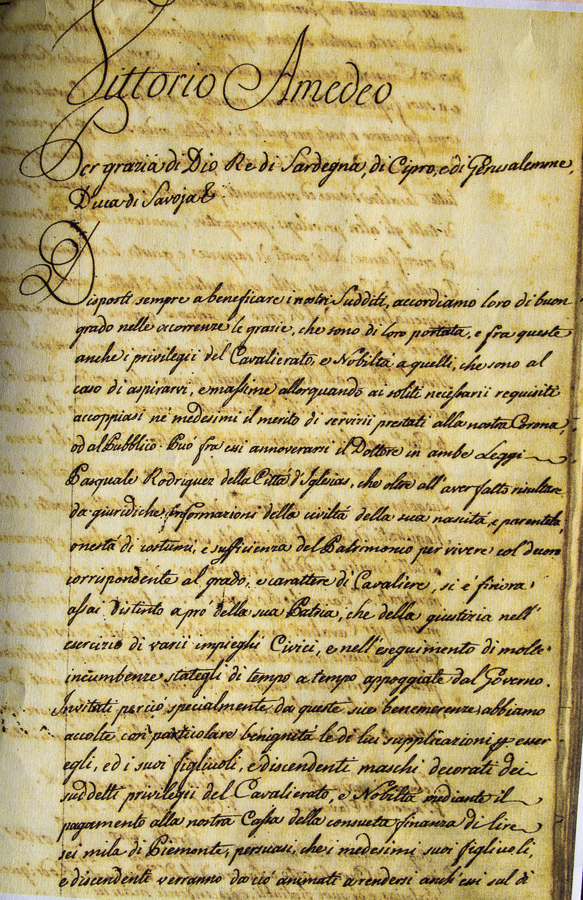 Vittorio Amedeo
Per grazia di Dio Re di Sardegna, di Cipro, e di Gerusalemme,
Duca di Savoja &.
Disposti sempre a beneficare i nostri Sudditi, accordiamo loro di buon
grado nelle occorrenze le grazie, che sono di loro portata, e fra queste
anche i privilegii del Cavalierato, e Nobiltà a quelli, che sono al
caso di aspirarvi, e massime allorquando ai soliti necessarii requisiti
accoppiasi ne' medesimi il merito di servizii prestati alla nostra Corona,
od al Pubblico. Può fra essi annoverarsi il Dottore in ambe Leggi
Pasquale Rodriguez della Città d'Iglesias, che oltre all'aver fatto risultare
da giuridiche informazioni della civiltà della sua nascita, e parentela,
onestà di costumi, e sufficienza del Patrimonio per vivere col decoro
corrispondente al grado, e carattere di Cavaliere, si è finora
assai distinto a pro della sua Patria, che della giustizia nell'
esercizio di varii impieghi Civici, e nell'eseguimento di molte
incumbenze stategli di tempo a tempo appoggiate dal Governo.
Invitati perciò specialmente da queste sue benemerenze abbiamo
accolte con particolare benignità le di lui supplicazioni per esser
egli, ed i suoi figliuoli, e discendenti maschi decorati dei
suddetti privilegii del Cavalierato, e Nobiltà mediante il
pagamento alla nostra Cassa della consueta finanza di lire
sei mila di Piemonte, persuasi, che i medesimi suoi figliuoli,
e discendenti verranno da ciò animati a rendersi anch'essi sul di